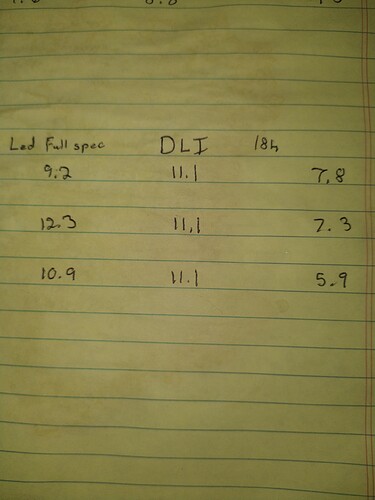 Led Full spec DLI 18h
9.2 11.1 7.8
12.3 11.1 7.3
10.9 11.1 5.9